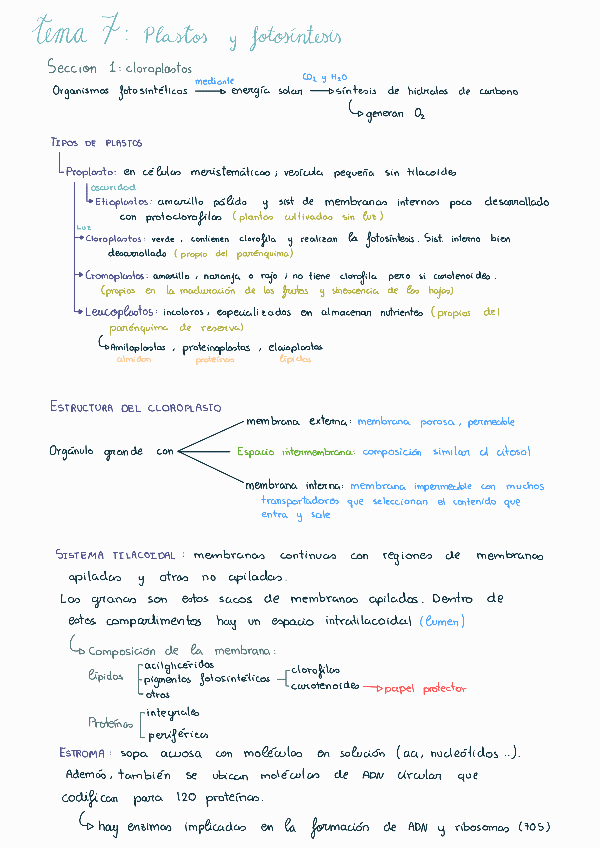 tema 7: Plastos y fotosíntesis
Sección 1: cloroplastos
mediante CO2 y H2O
Organismos fotosintéticos → energía solar → síntesis de hidratos de carbono
↳ generan O2
TIPOS DE PLASTOS
Proplasto: en células meristemáticas; vesícula pequeña sin tilacoides
oscuridad
Etioplastos: amarillo pálido y sist de membranas internas poco desarrollado
con protoclorofilas (plantas cultivadas sin luz)
LUZ
Cloroplastos: verde, contienen clorofila y realizan la fotosíntesis. Sist. interno bien
desarrollado (propio del parénquima)
Cromoplastos: amarillo, naranja o rojo; no tiene clorofila pero si carotenoides.
(propios en la maduración de los frutos y sinescencia de las hojas)
Leucoplastos: incoloros, especializados en almacenar nutrientes (propios del
parénquima de reserva)
↳ Amiloplastos, proteinoplastos, elaioplastos
almidon proteínas lípidos
ESTRUCTURA DEL CLOROPLASTO
membrana externa: membrana porosa, permeable
Orgánulo grande con Espacio intermembrana: composición similar al citosol
membrana interna: membrana impermeable con muchos
transportadores que seleccionan el contenido que
entra y sale
SISTEMA TILACOIDAL: membranas continuas con regiones de membranas
apiladas y otras no apiladas.
Las granas son estos sacos de membranas apilados. Dentro de
estos compartimentos hay un espacio intratilacoidal (lumen)
↳ Composición de la membrana:
acilglicéridos
lípidos pigmentos fotosintéticos clorofilas
carotenoides → papel protector
otros
Proteínas integrales
periférica
ESTROMA: sopa acuosa con moléculas en solución (aa, nucleótidos ..).
Además, también se ubican moléculas de ADN circular que
codifican para 120 proteínas.
↳ hay enzimas implicadas en la formación de ADN y ribosomas (70S)